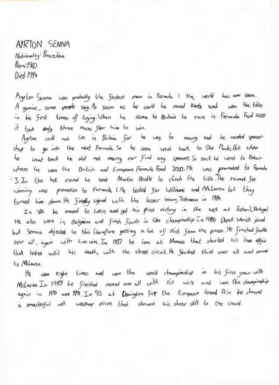 AYRTON SENNA
Nationality: Brazilian
Born: 1960
Died: 1994
Ayrton Senna was probably the fastest man in Formula 1 the world has ever seen.
A genius, some people say. As soon as he could he raced karts and won the titles
in his first times of trying. When he came to Britain to race in Formula Ford 1600
it took only three races for him to win.
Ayrton could not live in Britain for he was far money and he needed sponsor
ship to go into the next Formula. So he soon went back to São Paulo. But when
he went back he did not and any sponsors. So said he went to Britain
where he won the British and European Formula Ford 2000. He was promoted to Formula
3. In the he raced Martin Brundle to clinch the title. The reward for
winning was promotion to Formula 1. He tested for Williams and McLaren but they
turned him down. He finally signed with the lesser Toleman in 1984.
In '85 he moved to Lotus and got his first victory in the wet at Estoril, Portugal.
He also won in Belgium and finished fourth in the championship. In 1986
but Senna objected to this therefore getting a lot of stick from the press. He finished fourth
over all, again with two wins. In 1987 he won at Monaco that started his love affair
that lasted until his death, with the street circuit. He finished third over all and moved
to McLaren.
He won eight times and won the world championship in his first year with
McLaren. In 1989 he finished second over all with six wins and won the championship
again in 1990 and 1991. In '93 at Donington for the European Grand Prix he showed
a wonderful wet weather drive that showed his sheer skill to the crowd.